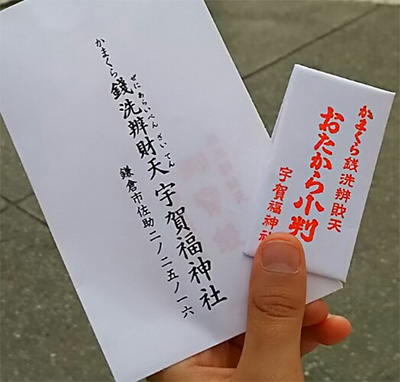 かまくら 銭洗辨財天 宇賀福神社
ぜにあらいべんざいてん
鎌倉市佐助二ノ二五ノ一六
かまくら銭洗辨財天
おたから小判
宇賀福神社